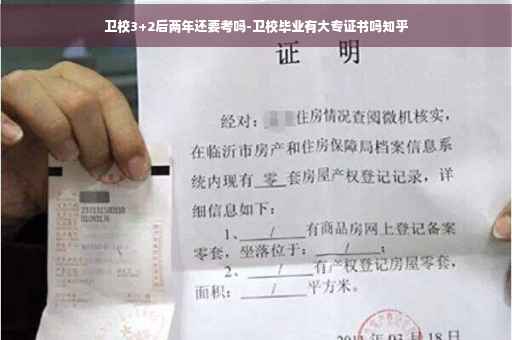 卫校3+2后两年还要考吗-卫校毕业有大专证书吗知乎
证 明
经对：住房情况查阅微机核实，
在临沂市房产和住房保障局档案信息系
统内现有 零 套房屋产权登记记录，详
细信息如下：
1、 / 有商品房网上登记备案
零套，坐落位于： / ；
2、 / 有产权登记房屋零套，
面积： / 平方米。
03月18日